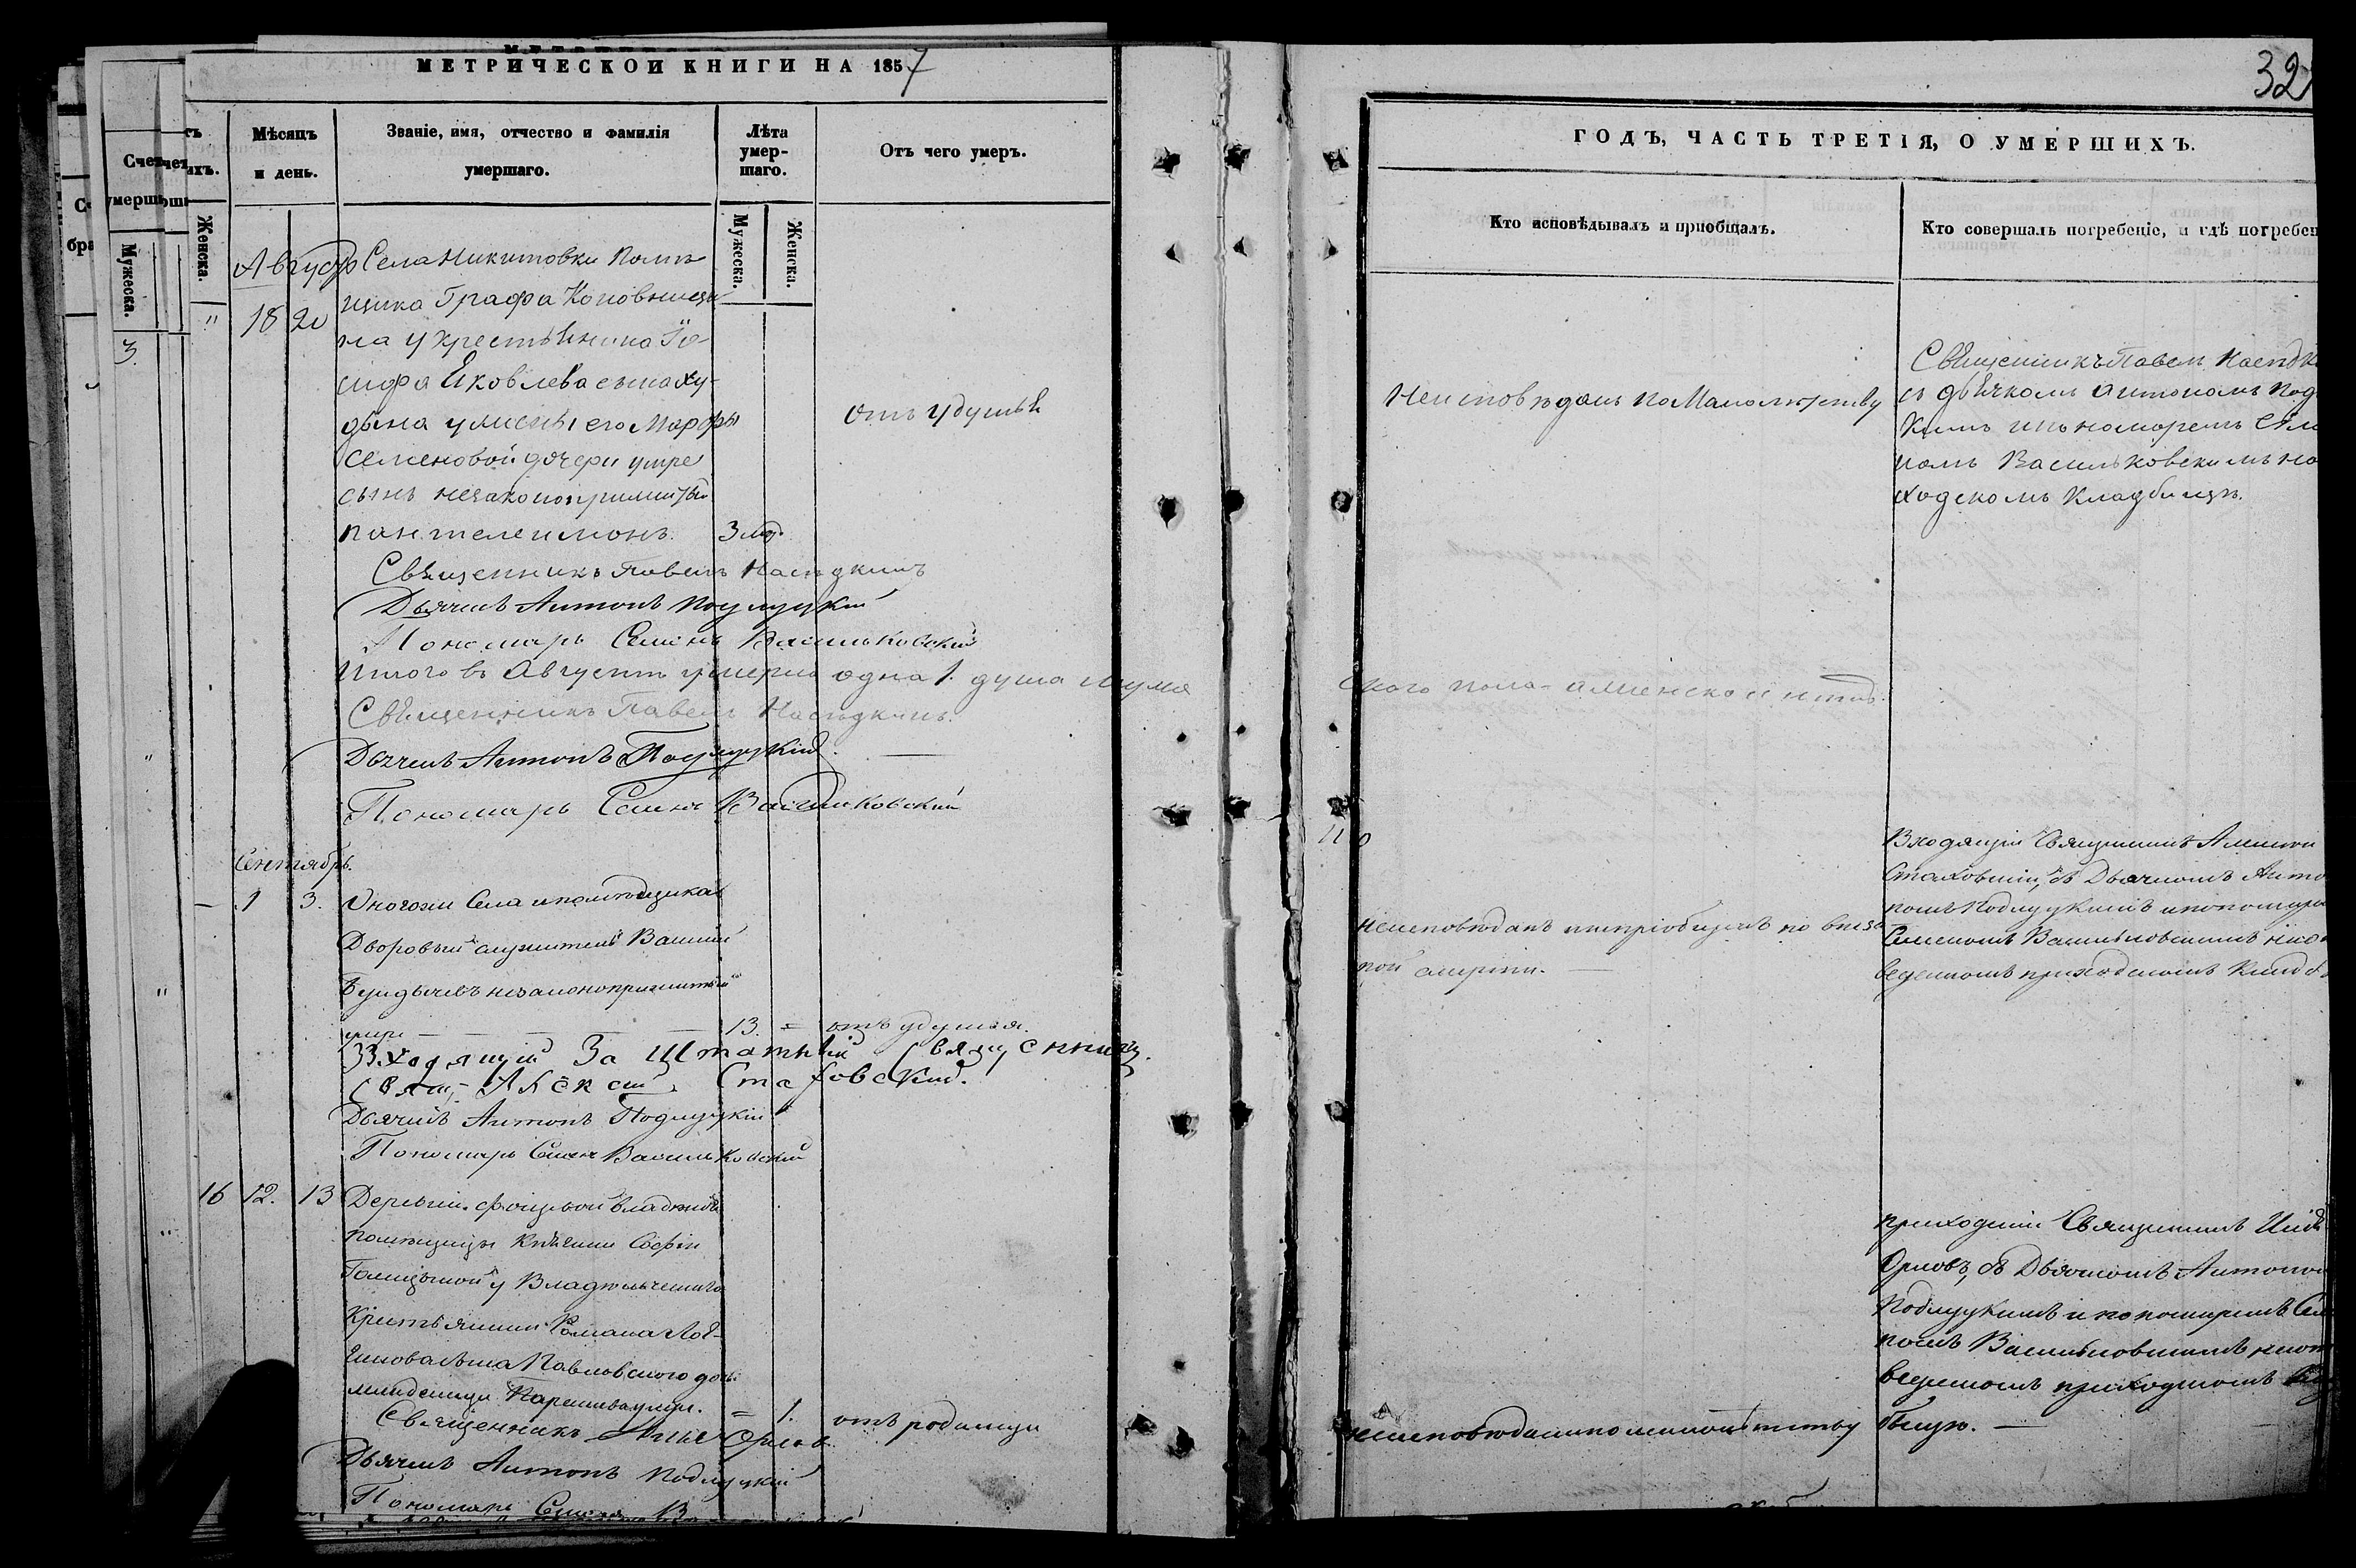 МЕТРИЧЕСКОЙ КНИГИ НА 1857
Мѣсяцъ и день.
Званіе, имя, отчество и фамилія умершаго.
Лѣта умер-
шаго.
Отъ чего умеръ.
Женска.
Мужеска.
Женска.
Мужеска.
3.
Августъ
18 20
Села Никитовки помѣ-
щика Графа
на у крестьянина Іо-
сифа Яковлева сына Ху-
дына у жены его Марфы
Семеновой дочери умре
сынъ незаконоприжитый
Пантелеимонъ. 3 мѣс.
отъ удушья
Священникъ Павелъ Насѣдкинъ
Дьячекъ Антонъ Подлуцкій
Пономарь Семенъ Васильковскій
Итого въ Августѣ умерло одна 1. душа муже
Священникъ Павелъ Насѣдкинъ.
Дьячекъ Антонъ Подлуцкій.
Пономарь Семенъ Васильковскій
Сентябрь.
1 3.
Оногожъ Села и помѣщика
Дворовый служитель Василій
незаконоприжитый
умре 13. отъ удушья.
Входящій Заштатный Священникъ
Свящ. Алексій Стаховскій.
Дьячекъ Антонъ Подлуцкій
Пономарь Семенъ Васильковскій
16 12. 13
Деревни владѣнія
помѣщицы Княгини Софіи
Голицыной у Владѣльческаго
Крестьянина Романа
Павловского дочь
младенецъ Парскева умре.
1. отъ родимца
Священникъ Илья Орловъ.
Дьячекъ Антонъ Подлуцкій
Пономарь Семенъ
32
ГОДЪ, ЧАСТЬ ТРЕТІЯ, О УМЕРШИХЪ.
Кто исповѣдывалъ и пріобщалъ.
Кто совершалъ погребеніе, и гдѣ погребен
Неисповѣданъ по Малолѣтству
Священникъ Павелъ
съ дьячкомъ Антономъ Под
кимъ и пономоремъ Семе
номъ Васильковскимъ на
ходскомъ кладбищѣ.
скаго пола а женска нѣтъ.
неисповѣданъ и непріобщенъ по внеза
пой смерти.
Входящій Священникъ Алексій
Стаховскій, съ Дьячкомъ Анто
номъ Подлуцкимъ и пономаремъ
Семеномъ Васильковскимъ на о
веденномъ приходскомъ кладб
неисповѣдана по малолѣтству
приходскій Священникъ Илья
Орловъ, съ Дьячкомъ Антоном
Подлуцкимъ и пономаремъ Сем
номъ Васильковскимъ на от
веденномъ приходскомъ кла
бищѣ.